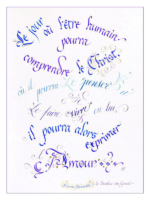 Le jour
où l'être humain
pourra
comprendre le Christ,
où il pourra Le penser
Le faire vivre en lui,
il pourra alors
exprimer
L'Amour